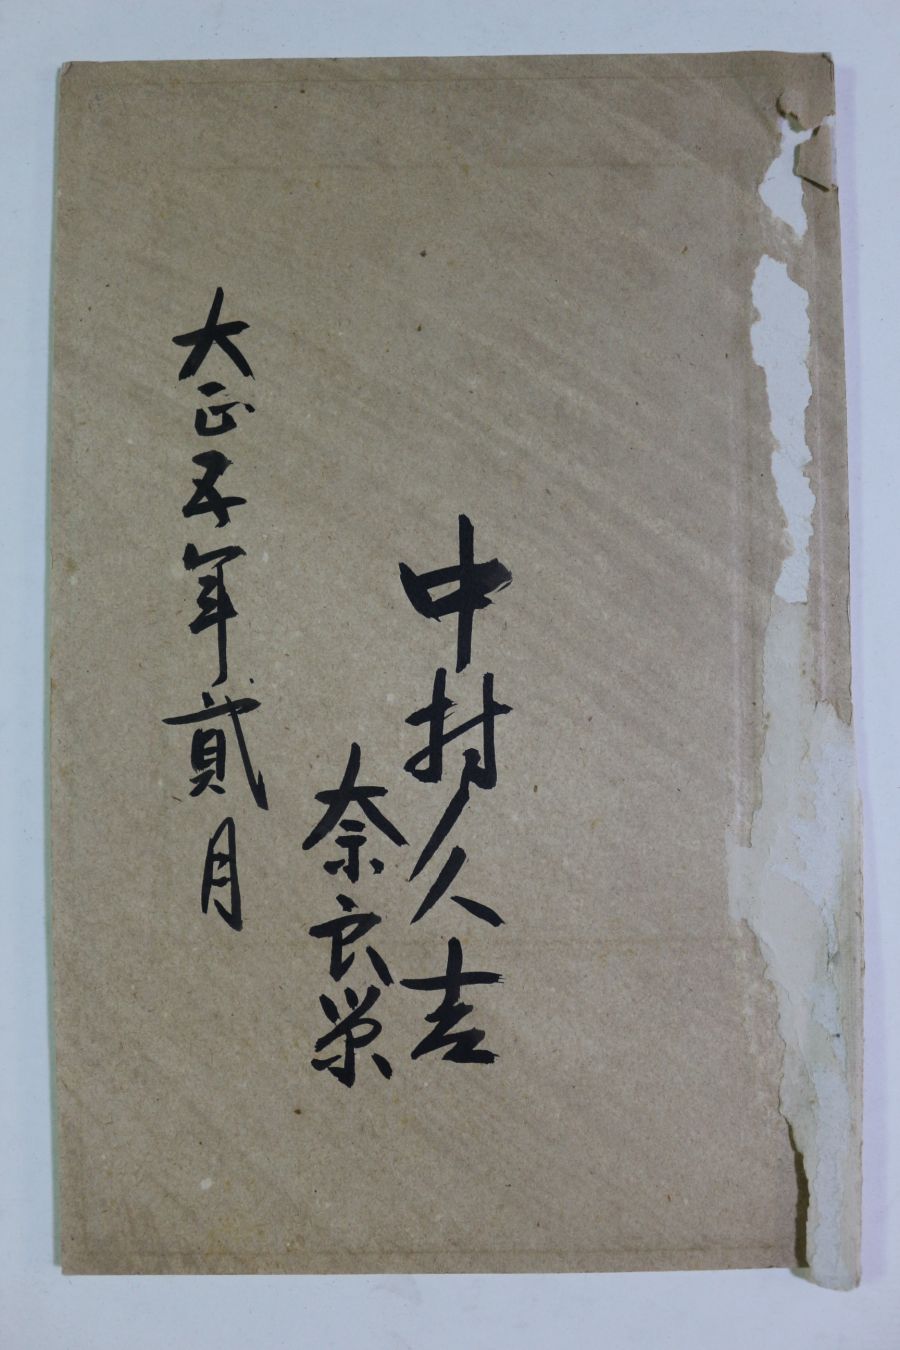 中村久吉
奈良栄
大正五年貳月